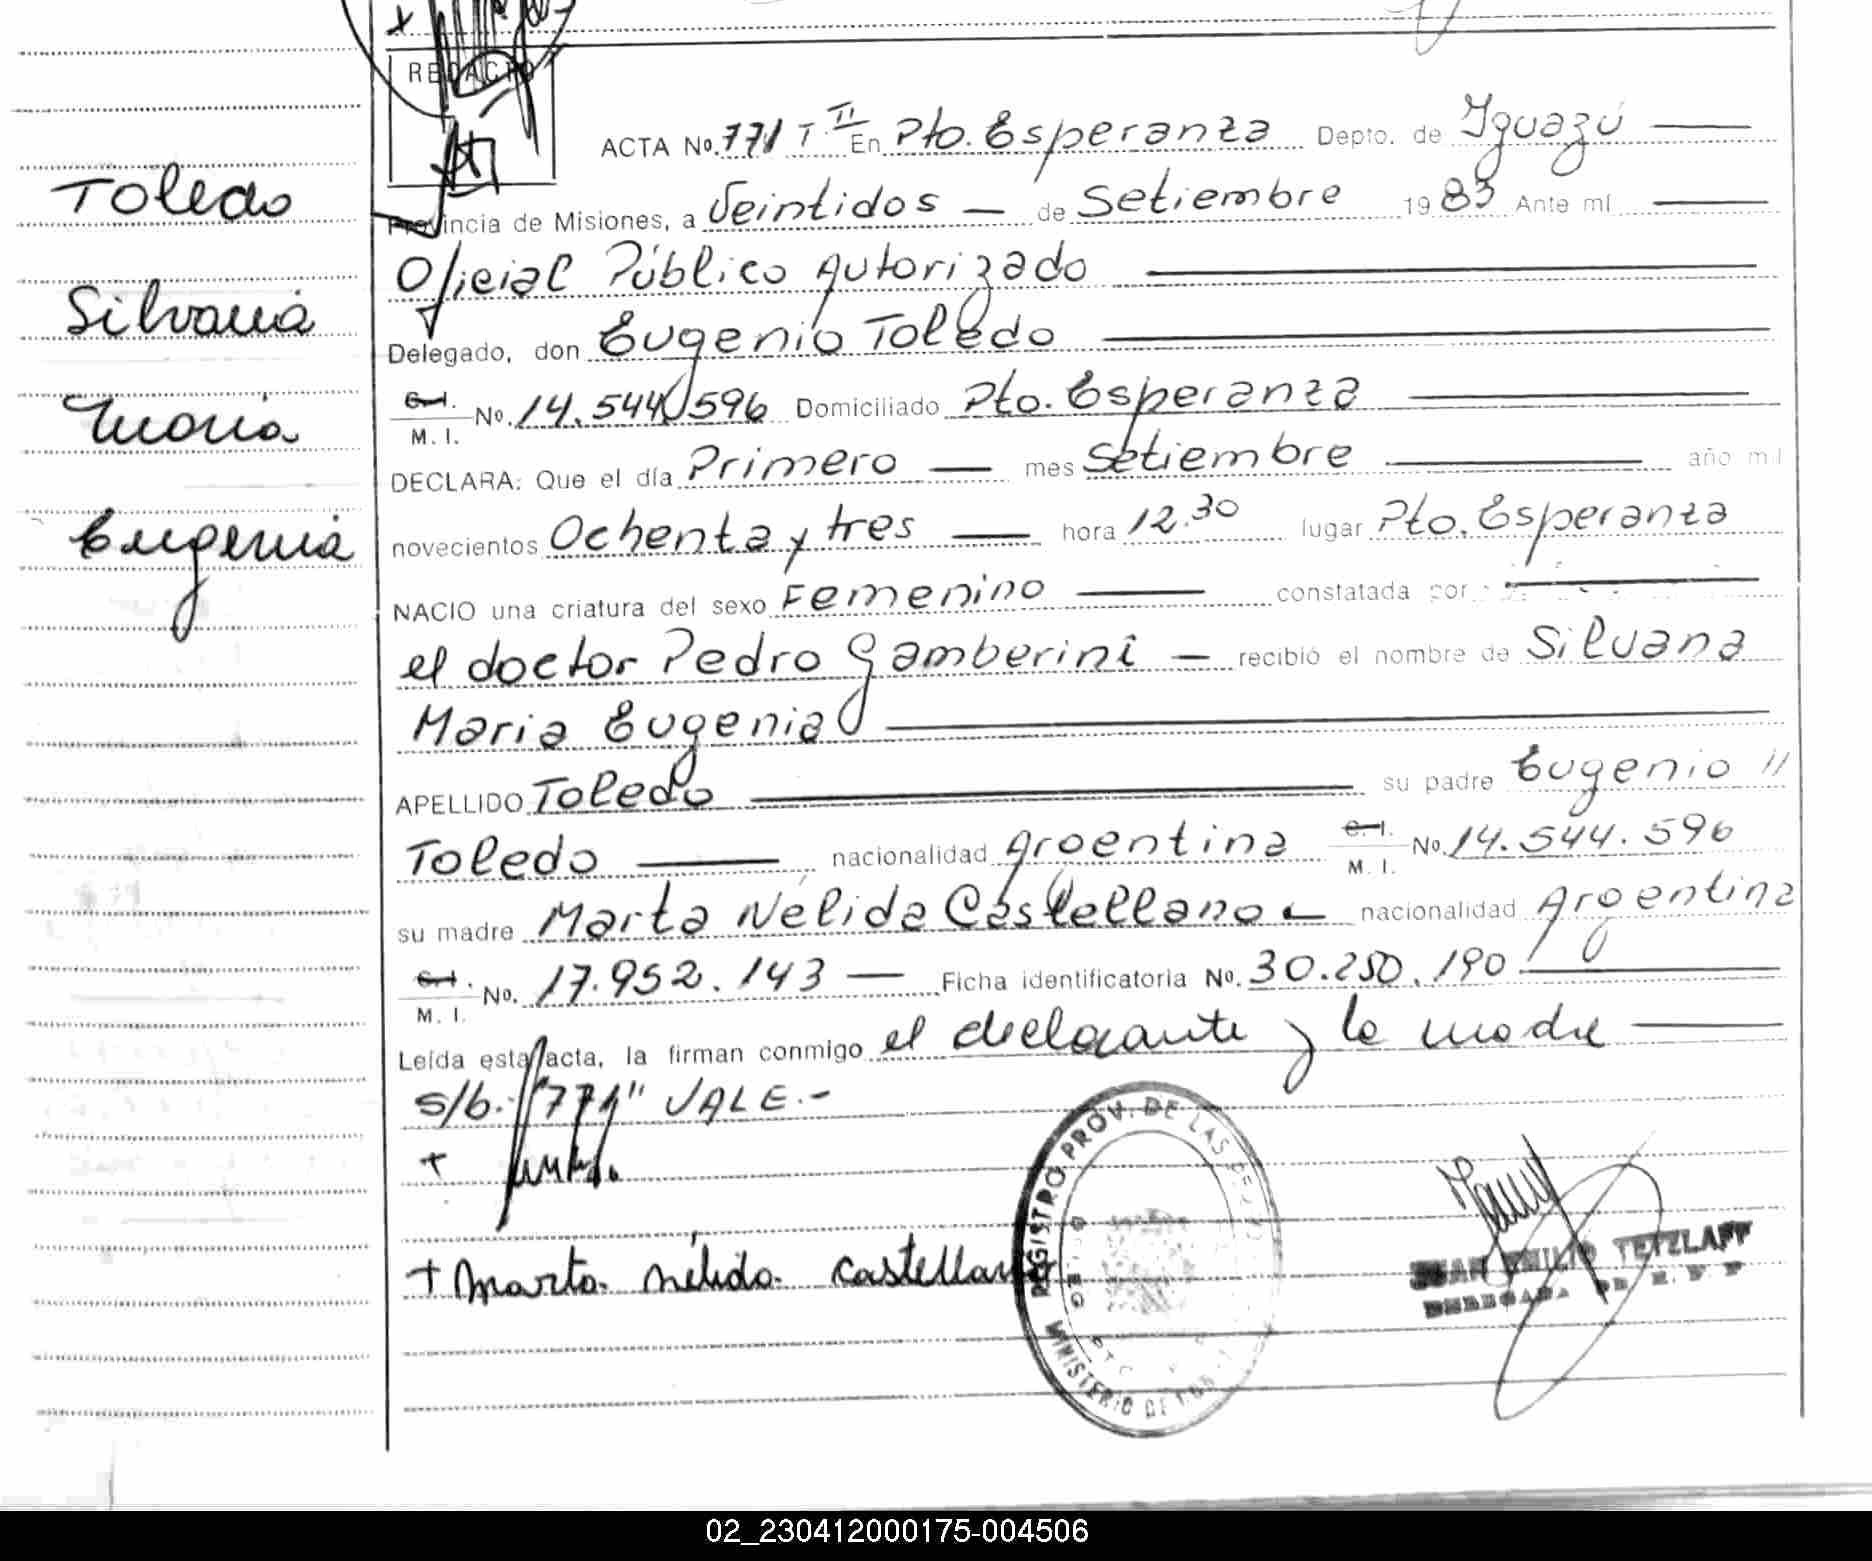 REDACTO
ACTA Nº. 771 T II En Pto. Esperanza Depto. de Iguazú
Provincia de Misiones, a Veintidos de Setiembre 1983 Ante mí
Oficial Público Autorizado
Delegado, don Eugenio Toledo
C.I. M. I. Nº. 14.544.596 Domiciliado Pto. Esperanza
DECLARA: Que el día Primero mes Setiembre año mil
novecientos Ochenta y tres hora 12.30 lugar Pto. Esperanza
NACIO una criatura del sexo Femenino constatada por
el doctor Pedro Gamberini recibió el nombre de Silvana
Maria Eugenia
APELLIDO Toledo su padre Eugenio //
Toledo nacionalidad Argentina C.I. M. I. Nº. 14.544.596
su madre Marta Nélida Castellano nacionalidad Argentina
C.I. M. I. Nº. 17.952.143 Ficha identificatoria Nº. 30.250.190
Leída esta acta, la firman conmigo el declarante y la madre
s/b. "771" VALE.-
+
+ Marta nélida castellano
Toledo
Silvana
Maria
Eugenia
REGISTRO PROV. DE LAS
MINISTERIO DE
JUAN EMILIO TETZLAFF
02_230412000175-004506